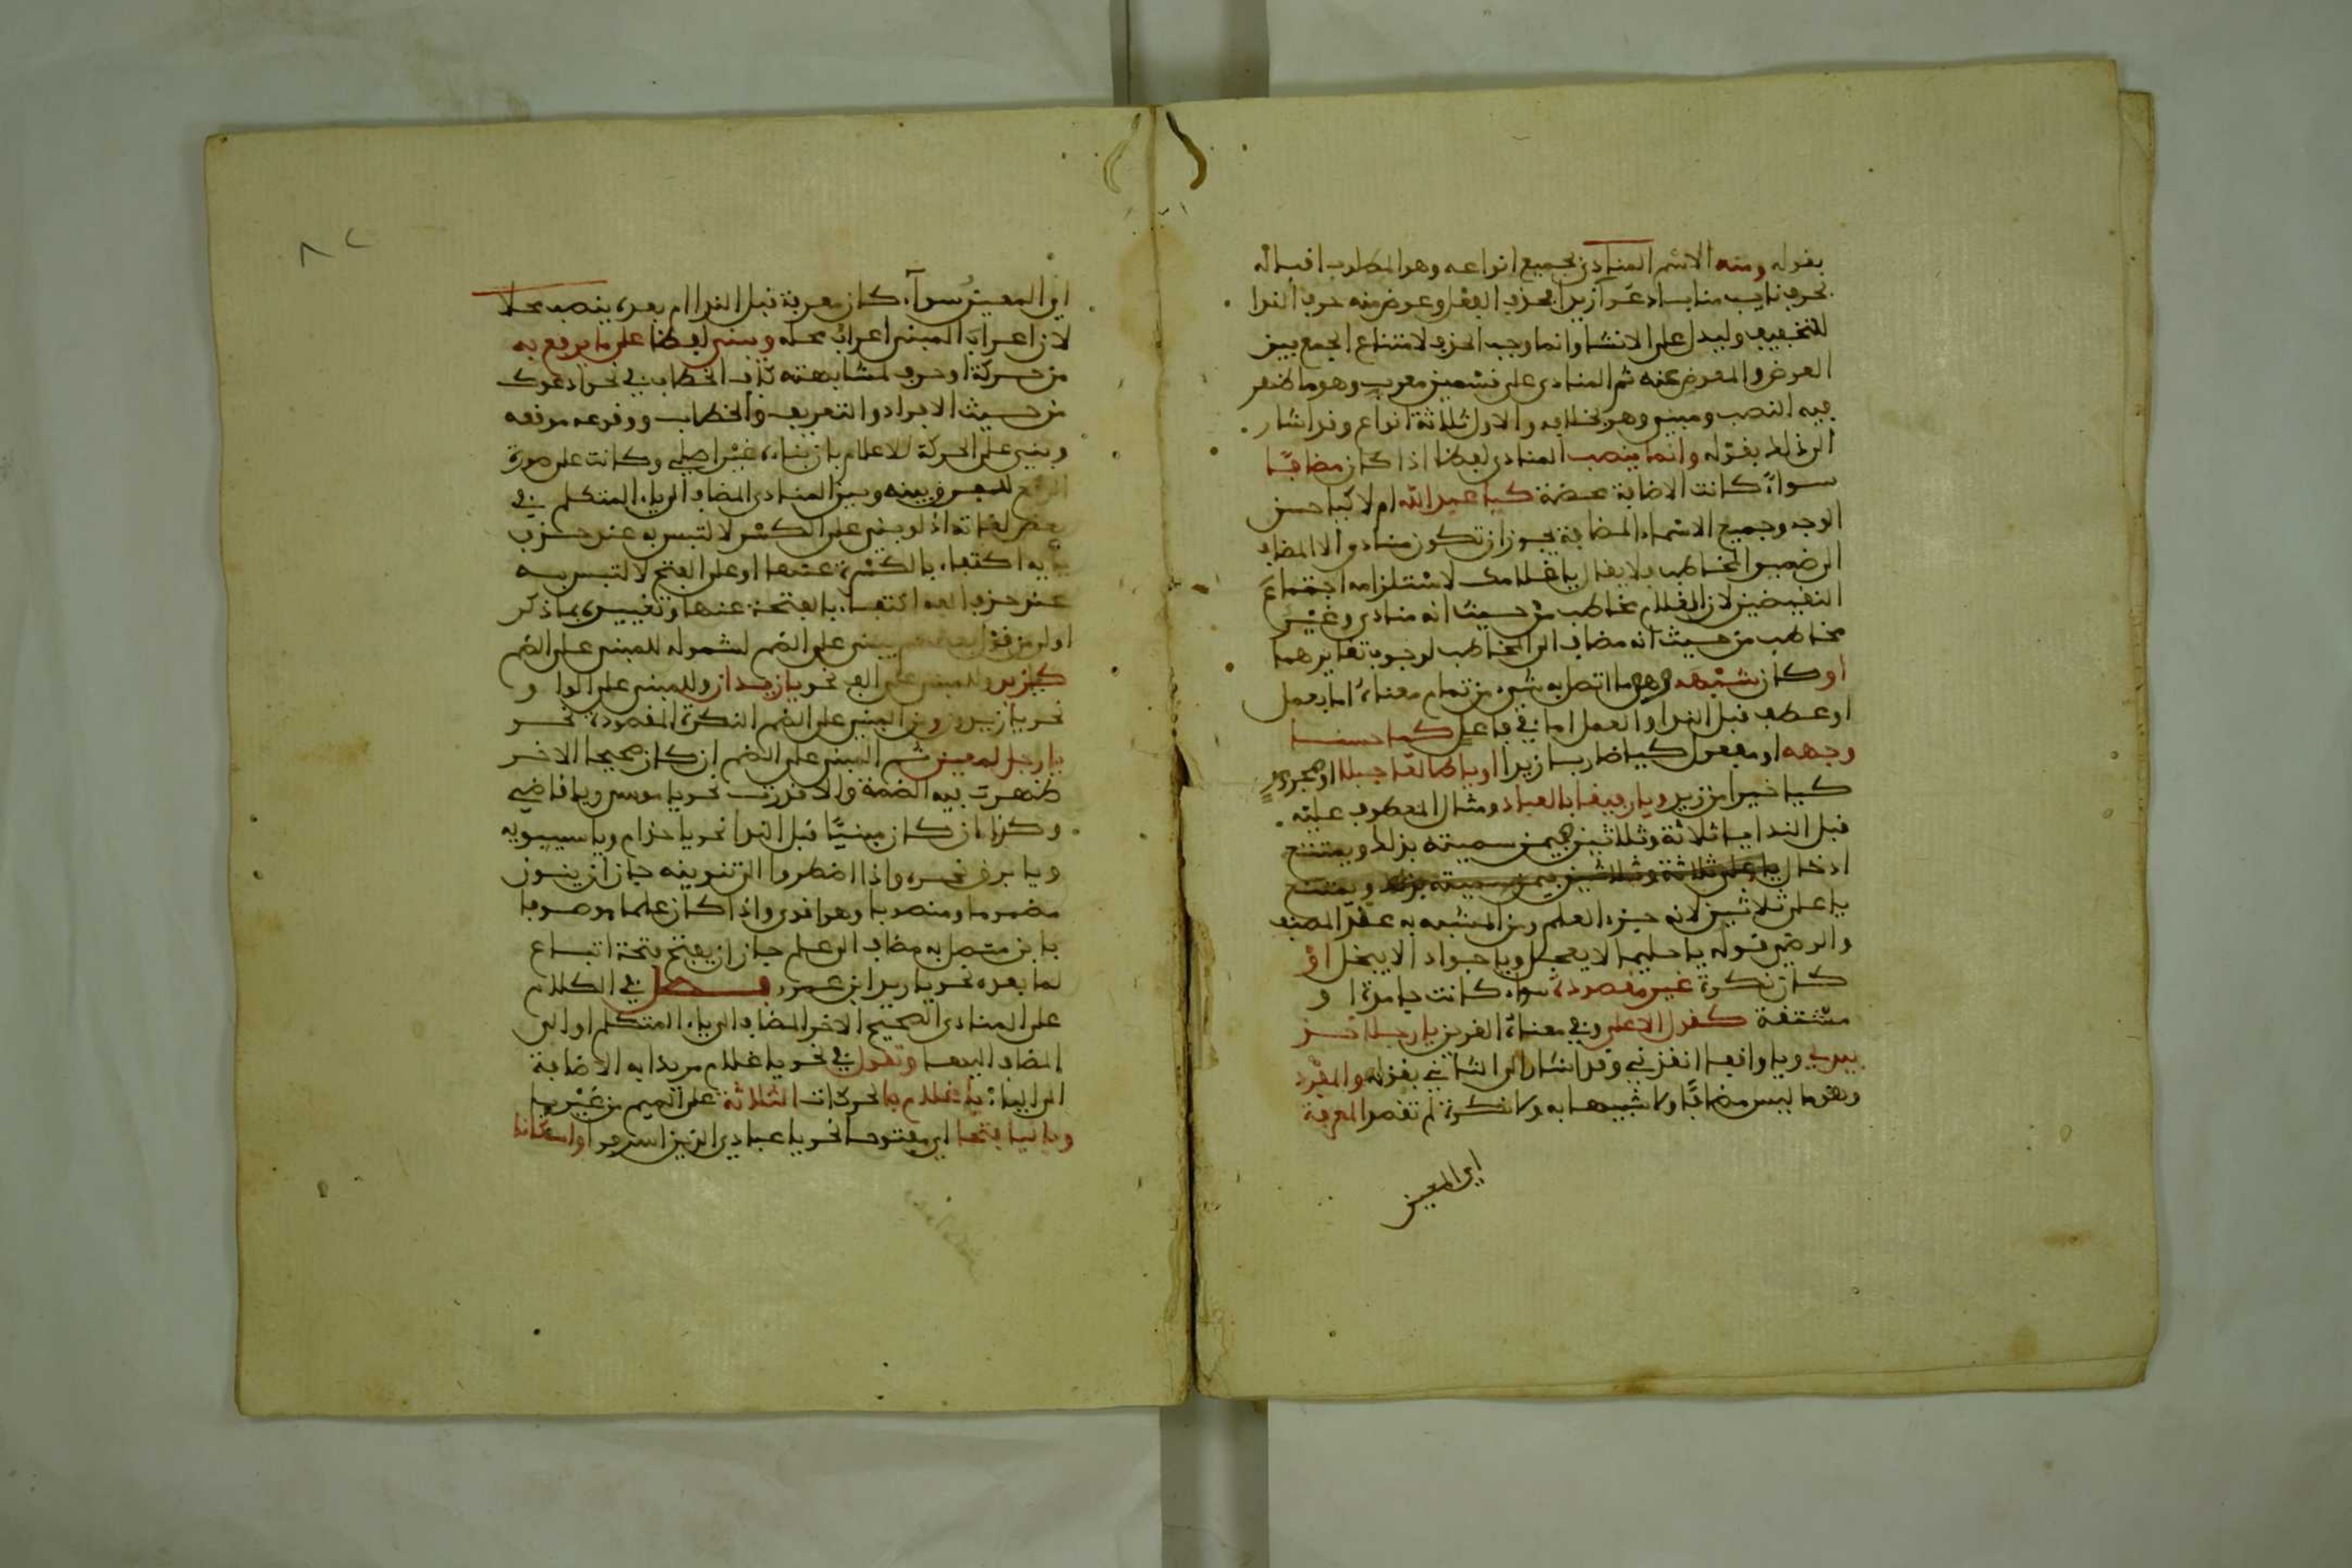 بقوله ومنه الاسم المنادى بجميع انواعه وهو المطلوب اقباله
بحرف نايب مناب ادعوا زيدا بحذف الفعل وعوض منه حرف الندا
للتخفيف وليدل على الانشا وانما وجب الحذف لامتناع الجمع بين
العوض والمعوض عنه ثم المنادى على قسمين معرب وهو ما ظهر
فيه النصب ومبني وهو بخلافه والاول ثلاثة انواع وقد اشار
الى ذلك بقوله وانما ينصب المنادى لفظا اذا كان مضافا
سواء كانت الاضافة محضة كيا عبد الله ام لا كيا حسن
الوجه وجميع الاسماء المضافة يجوز ان تكون منادى الا المضاف
الى ضمير المخاطب فلا يقال يا غلامك لاستلزامه اجتماع
النقيضين لان الغلام مخاطب من حيث انه منادى وغير
مخاطب من حيث انه مضاف الى المخاطب لوجوب تغايرهما
او كان شبهه وهو ما اتصل به شيء من تمام معناه اما بعمل
او عطف قبل الندا والعمل اما في فاعل كيا حسنا
وجهه او مفعول كيا ضاربا زيدا او يا طالعا جبلا او مجرور
كيا خيرا من زيد ويا رفيقا بالعباد ومثال المعطوف عليه
قبل الندا يا ثلاثة وثلاثين فيمن سميته بذلك ويمتنع
ادخال يا على ثلاثة وثلاثين فيمن سميته بذلك ويمتنع
يا على ثلاثين لانه جزء العلم ومن المشبه به عند المصنف
والرضي قوله يا حليما لا يعجل ويا جوادا لا يبخل او
كان نكرة غير مقصودة سواء كانت جامدة او
مشتقة كقول الاعمى وفي معناه الغريق يا رجلا خذ
بيدي ويا واقفا انقذني وقد اشار الى الثاني بقوله والمفرد
وهو ما ليس مضافا ولا شبيها به ولا نكرة لم تقصد المعرفة
اي المعين
اي المعين سواء كان معرفة قبل الندا ام بعده ينصب محلا
لان اعراب المبني اعراب محله ويبنى لفظا على ما يرفع به
من حركة او حرف لمشابهته كاف الخطاب في نحو ادعوك
من حيث الافراد والتعريف والخطاب ووقوعه موقعه
وبني على الحركة للاعلام بان بناءه غير اصلي وكانت على صورة
الرفع للفرق بينه وبين المنادى المضاف الى ياء المتكلم في
بعض لغاته اذ لو بني على الكسر لالتبس به عند حذف
يائه اكتفاء بالكسرة عنها او على الفتح لالتبس به
عند حذف الفه اكتفاء بالفتحة عنها وتعبيره بما ذكر
اولى من قول بعضهم يبنى على الضم لشموله للمبني على الضم
كيا زيد وللمبني على الالف نحو يا زيدان وللمبني على الواو
نحو يا زيدون ومن المبني على الضم النكرة المقصودة نحو
يا رجل لمعين ثم المبني على الضم ان كان صحيح الاخر
ظهرت فيه الضمة والا قدرت نحو يا موسى ويا قاضي
وكذا ان كان مبنيا قبل الندا نحو يا حذام ويا سيبويه
ويا برق نحره واذا اضطروا الى تنوينه جاز ان ينون
مضموما ومنصوبا وهو اقوى واذا كان علما موصوفا
بابن متصل به مضاف الى علم جاز ان يفتح فتحة اتباع
لما بعده نحو يا زيد ابن عمرو فصل في الكلام
على المنادى الصحيح الاخر المضاف الى ياء المتكلم او الى
المضاف اليها وتقول في نحو يا غلام مريدا به الاضافة
الى الياء يا غلام بالحركات الثلاثة على الميم من غير يا
وبالياء فتحا اي مفتوحة نحو يا عبادي الذين اسرفوا او اسكانا